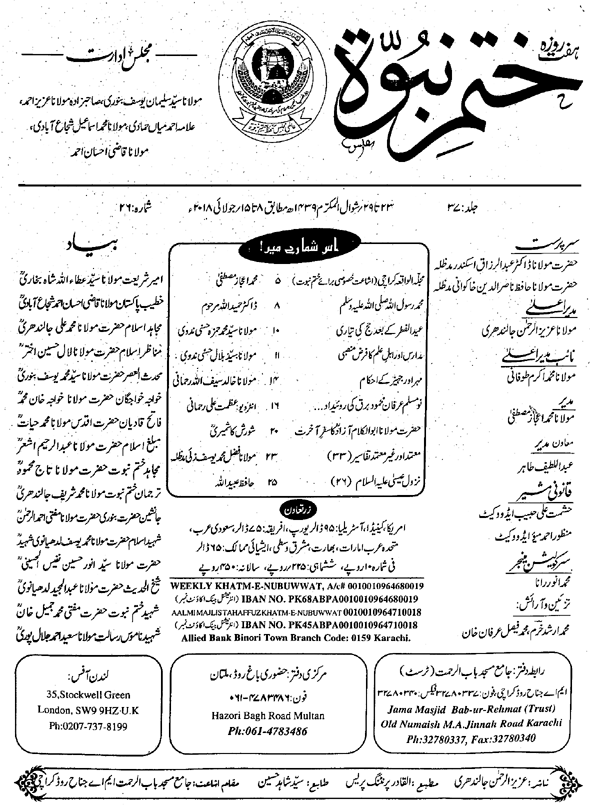 ہفت روزہ
ختم نبوۃ
مجلس ادارت
مولانا سیّد سلیمان یوسف بنوری، صاحبزادہ مولانا عزیز احمد،
علامہ احمد میاں حمادی، مولانا محمد اسماعیل شجاع آبادی،
مولانا قاضی احسان احمد
جلد: ۳۷
۲۳ تا ۲۹ / شوال المکرّم ۱۴۳۹ھ مطابق ۸ تا ۱۵ / جولائی ۲۰۱۸ء
شمارہ: ۲۶
سرپرست
حضرت مولانا ڈاکٹر عبدالرزاق اسکندر مدظلہ
حضرت مولانا حافظ ناصرالدین خاکوانی مدظلہ
مدیر اعلیٰ
مولانا عزیز الرحمٰن جالندھری
نائب مدیر اعلیٰ
مولانا محمد اکرم طوفانی
مدیر
مولانا محمد اعجاز مصطفیٰ
معاون مدیر
عبداللطیف طاہر
قانونی مشیر
حشمت علی حبیب ایڈووکیٹ
منظور احمد میؤ ایڈووکیٹ
سرکولیشن منیجر
محمد انور رانا
تزئین و آرائش:
محمد ارشد خرم، محمد فیصل عرفان خان
اس شمارے میں!
مجلّہ الواقعۃ کراچی (اشاعت خصوصی برائے ختم نبوت) ۵ محمد اعجاز مصطفیٰ
محمد رسول اللہ صلی اللہ علیہ وسلم ۸ ڈاکٹر حمید اللہ مرحوم
عید الفطر کے بعد حج کی تیاری ۱۰ مولانا سیّد محمد حمزہ حسنی ندوی
مدارس اور اہل علم کا فرض منصبی ۱۱ مولانا سیّد بلال حسنی ندوی
مہر اور جہیز کے احکام ۱۴ مولانا خالد سیف اللہ رحمانی
نومسلم عرفان محمود برق کی روئیداد... ۱۶ انٹرویو: عظمت علی رحمانی
حضرت مولانا ابوالکلام آزاد کا سفرِ آخرت ۲۰ شورش کاشمیری
معتمد اور غیر معتمد تفاسیر (۳۳) ۲۳ مولانا فضل محمد یوسف زئی مدظلہ
نزول عیسیٰ علیہ السلام (۲۶) ۲۵ حافظ عبیداللہ
زرتعاون
امریکا، کینیڈا، آسٹریلیا: ۹۵ ڈالر یورپ، افریقہ: ۷۵ ڈالر، سعودی عرب،
متحدہ عرب امارات، بھارت، مشرق وسطیٰ، ایشیائی ممالک: ۶۵ ڈالر
فی شمارہ ۱۰ روپے، ششماہی: ۲۲۵ روپے، سالانہ: ۴۵۰ روپے
WEEKLY KHATM-E-NUBUWWAT, A/c# 0010010964680019
(انٹرنیشنل بینک اکاؤنٹ نمبر) IBAN NO. PK68ABPA0010010964680019
AALMI MAJLIS TAHAFFUZ KHATM-E-NUBUWWAT 0010010964710018
(انٹرنیشنل بینک اکاؤنٹ نمبر) IBAN NO. PK45ABPA0010010964710018
Allied Bank Binori Town Branch Code: 0159 Karachi.
بیاد
امیر شریعت مولانا سیّد عطاء اللہ شاہ بخاریؒ
خطیب پاکستان مولانا قاضی احسان احمد شجاع آبادیؒ
مجاہد اسلام حضرت مولانا محمد علی جالندھریؒ
مناظر اسلام حضرت مولانا لال حسین اخترؒ
محدث العصر حضرت مولانا سیّد محمد یوسف بنوریؒ
خواجہ خواجگان حضرت مولانا خواجہ خان محمدؒ
فاتح قادیان حضرت اقدس مولانا محمد حیاتؒ
مبلغ اسلام حضرت مولانا عبدالرحیم اشعرؒ
مجاہد ختم نبوت حضرت مولانا تاج محمودؒ
ترجمان ختم نبوت حضرت مولانا محمد شریف جالندھریؒ
جانشین حضرت بنوری حضرت مولانا مفتی احمد الرحمٰنؒ
شہید اسلام حضرت مولانا محمد یوسف لدھیانوی شہیدؒ
حضرت مولانا سیّد انور حسین نفیس الحسینیؒ
شیخ الحدیث حضرت مولانا عبدالمجید لدھیانویؒ
شہید ختم نبوت حضرت مفتی محمد جمیل خانؒ
شہید ناموس رسالت مولانا سعید احمد جلال پوریؒ
رابطہ دفتر: جامع مسجد باب الرحمت (ٹرسٹ)
ایم اے جناح روڈ کراچی، فون: ۳۲۷۸۰۳۳۷ فیکس: ۳۲۷۸۰۳۴۰
Jama Masjid Bab-ur-Rehmat (Trust)
Old Numaish M.A.Jinnah Road Karachi
Ph:32780337, Fax:32780340
مرکزی دفتر: حضوری باغ روڈ، ملتان
فون: ۰۶۱-۴۷۸۳۴۸۶
Hazori Bagh Road Multan
Ph:061-4783486
لندن آفس:
35,Stockwell Green
London, SW9 9HZ-U.K
Ph:0207-737-8199
ناشر: عزیز الرحمٰن جالندھری مطبع: القادر پرنٹنگ پریس طابع: سیّد شاہد حسین مقام اشاعت: جامع مسجد باب الرحمت ایم اے جناح روڈ کراچی